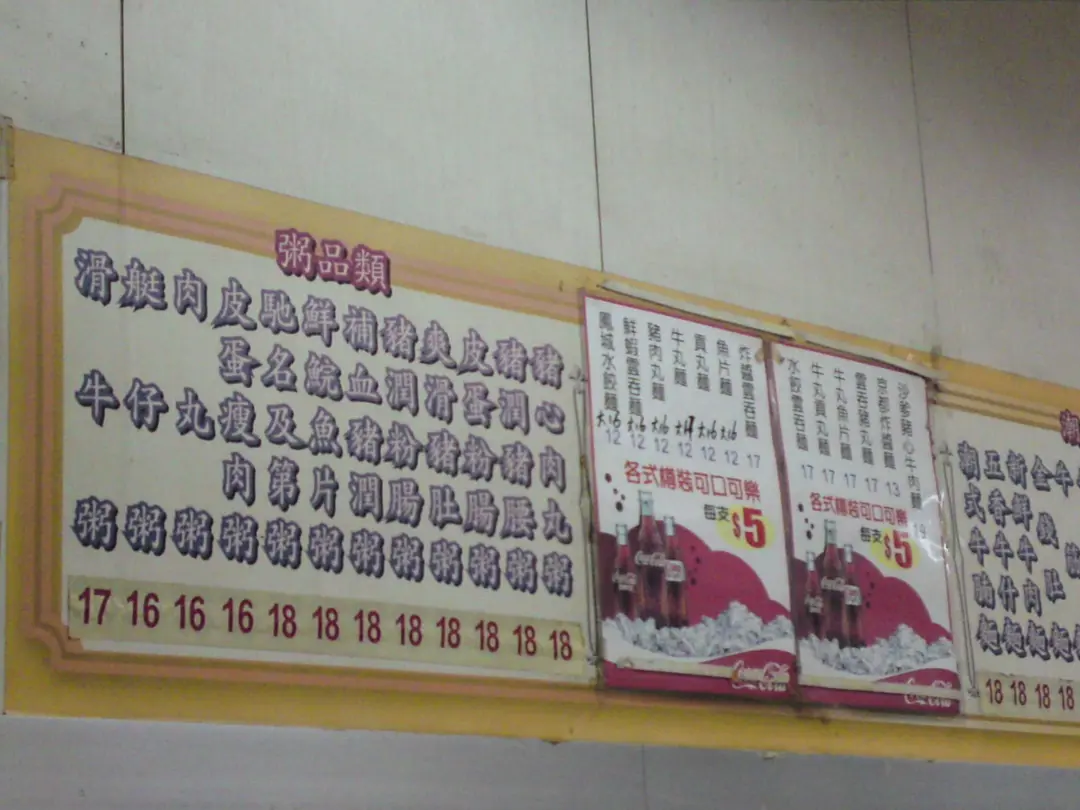 粥品類
滑牛粥 17
艇仔粥 16
肉丸粥 16
皮蛋瘦肉粥 16
馳名及第粥 18
鮮鯇魚片粥 18
補血豬潤粥 18
豬潤粉腸粥 18
爽滑豬肚粥 18
皮蛋粉腸粥 18
豬潤豬腰粥 18
豬心肉丸粥 18
鳳城水餃麵 大16 12
鮮蝦雲吞麵 大16 12
豬肉丸麵 大16 12
牛丸麵 大17 12
貢丸麵 大16 12
魚片麵 大16 12
炸醬雲吞麵 17
各式樽裝可口可樂
每支 $5
Coca-Cola
水餃雲吞麵 17
牛丸貢丸麵 17
牛丸魚片麵 17
雲吞豬丸麵 17
京都炸醬麵 13
沙爹豬心牛肉麵 19
各式樽裝可口可樂
每支 $5
Coca-Cola
潮
潮式牛腩麵 18
五香牛什麵 18
新鮮牛肉麵 18
金錢肚麵 18
牛